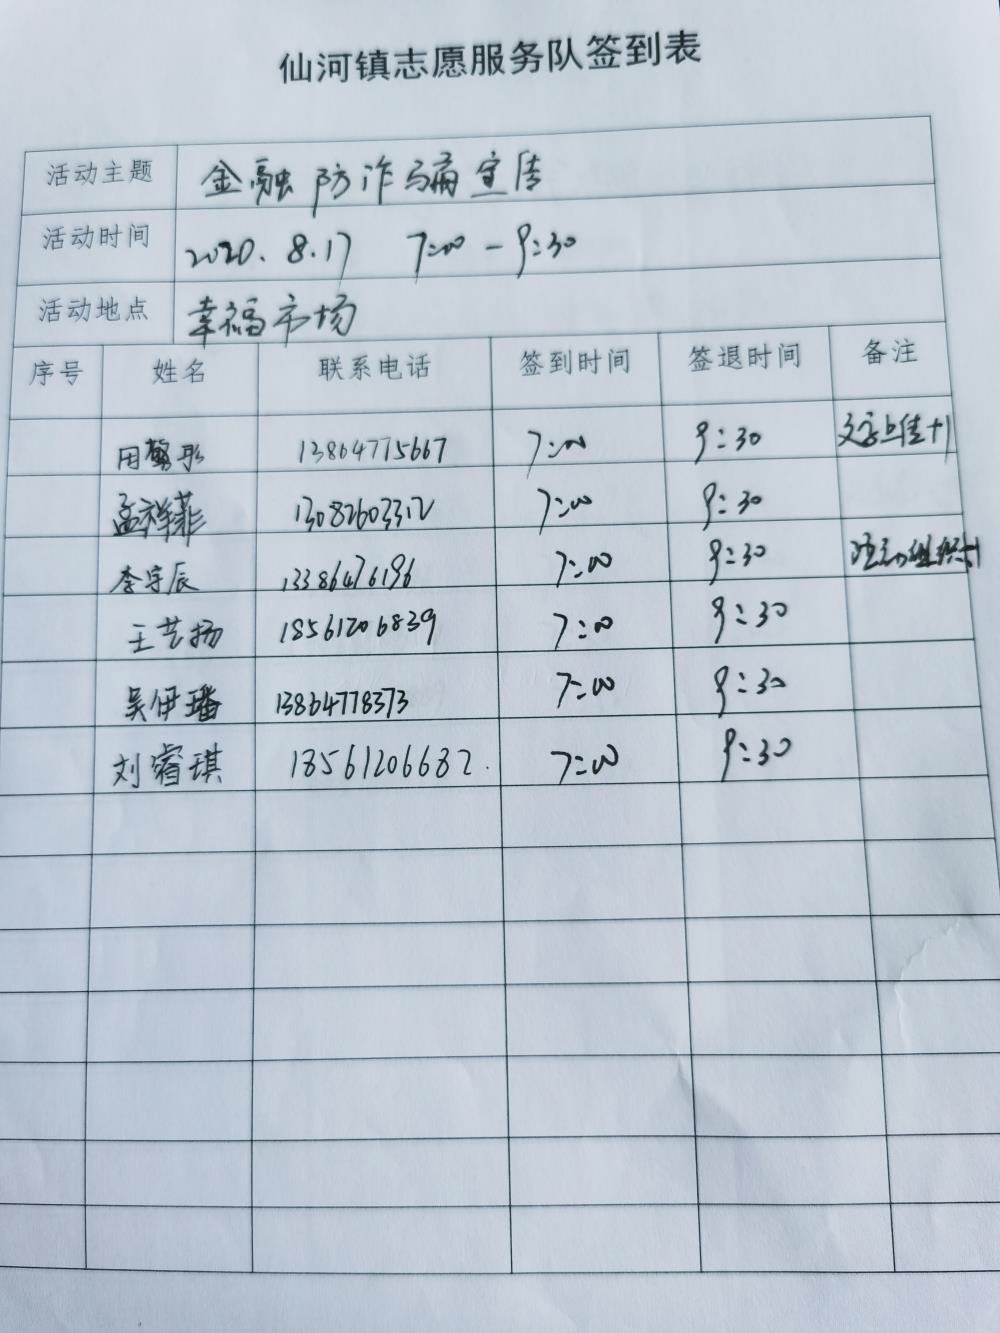 仙河镇志愿服务队签到表
活动主题 金融防诈骗宣传
活动时间 2020.8.17 7:00-9:30
活动地点 幸福市场
序号 姓名 联系电话 签到时间 签退时间 备注
周馨彤 13864775667 7:00 9:30 +1
孟祥菲 13082603312 7:00 9:30
李宇辰 13386476196 7:00 9:30
王艺扬 18561206839 7:00 9:30
吴伊璠 13864778373 7:00 9:30
刘睿琪 18561206682. 7:00 9:30